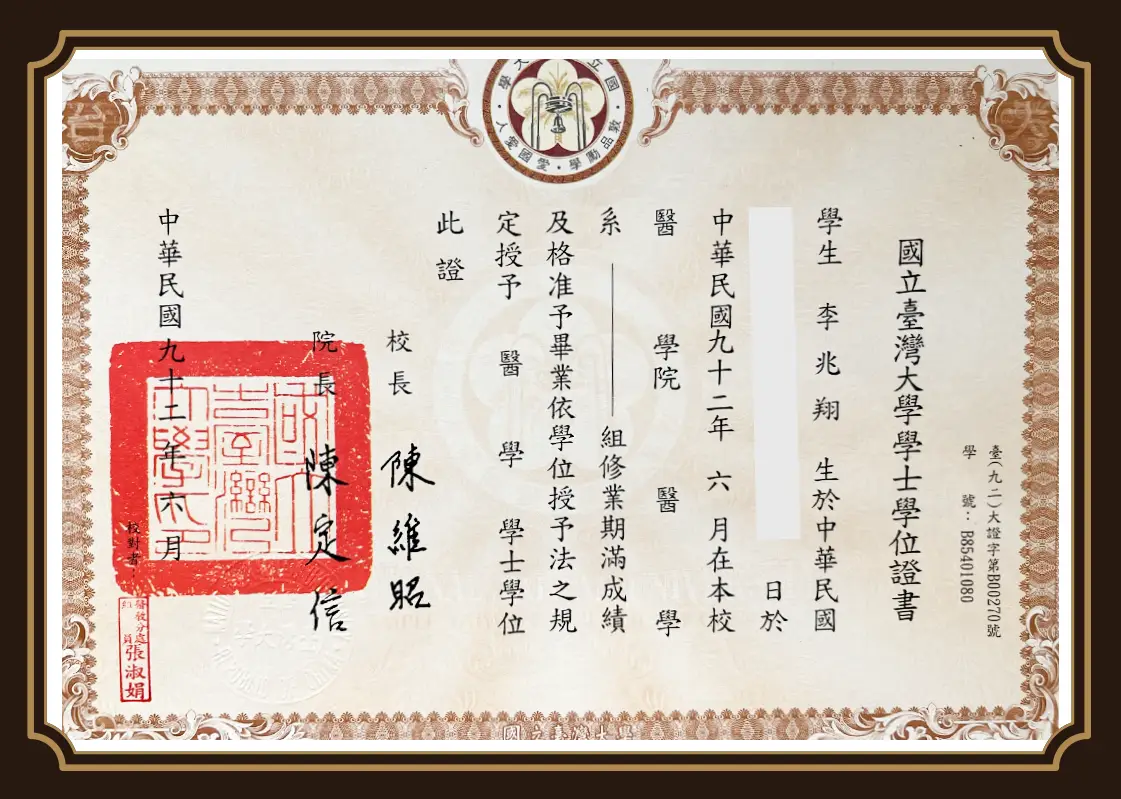 臺(九二)大證字第B00270號
學 號：B85401080
國立臺灣大學學士學位證書
學生 李兆翔 生於中華民國
日於
中華民國九十二年 六 月在本校
醫 學院 醫 學
系 組修業期滿成績
及格准予畢業依學位授予法之規
定授予 醫 學 學士學位
此證
校長 陳維昭
院長 陳定信
中華民國九十二年六月
校對者：
張淑娟
國立臺灣大學